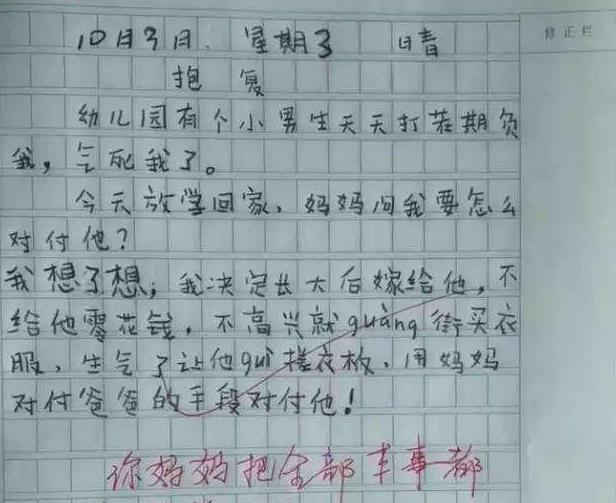 10月3日、 星期3 日青
修正栏
抱 复
幼儿园有个小男生天天打茬期负
我，气死我了。
今天放学回家，妈妈问我要怎么
对付他？
我想了想，我决定长大后嫁给他，不
给他零花钱，不高兴就guàng街买衣
服，生气了让他guì搓衣板，用妈妈
对付爸爸的手段对付他！
你妈妈把全部本事都